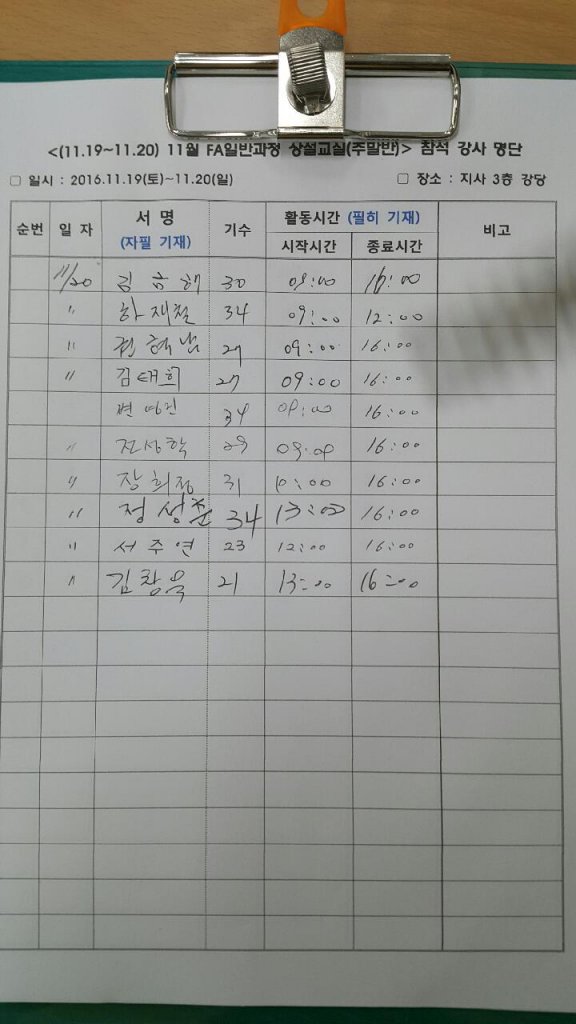 <(11.19~11.20) 11월 FA일반과정 상설교실(주말반)> 참석 강사 명단
□ 일시 : 2016.11.19(토)~11.20(일) □ 장소 : 지사 3층 강당
순번 일 자 서 명 (자필 기재) 기수 활동시간 (필히 기재) 비고
시작시간 종료시간
11/20 김 30 09:00 16:00
" 하재철 34 09:00 12:00
" 권혁남 27 09:00 16:00
" 김태희 27 09:00 16:00
34 09:00 16:00
" 전상학 29 09:00 16:00
" 장희정 31 10:00 16:00
" 정성훈 34 13:00 16:00
" 서주연 23 12:00 16:00
" 김창욱 21 13:00 16:00